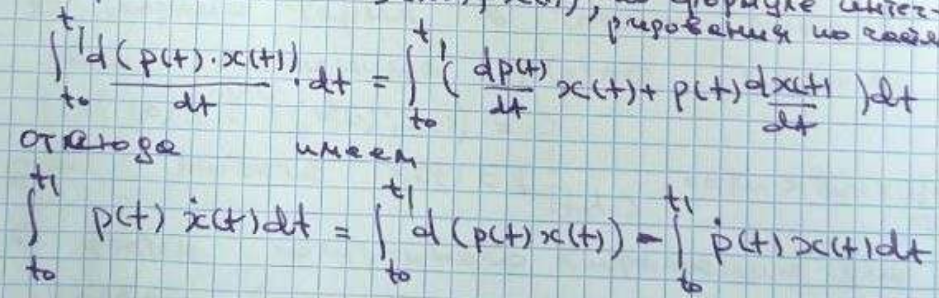 по формуле интег-
рирования по частям
∫_{t_0}^{t_1} d(p(t)·x(t))/dt · dt = ∫_{t_0}^{t_1} ( dp(t)/dt x(t) + p(t) dx(t)/dt ) dt
откюда имеем
∫_{t_0}^{t_1} p(t) ẋ(t) dt = ∫_{t_0}^{t_1} d(p(t) x(t)) - ∫_{t_0}^{t_1} ṗ(t) x(t) dt